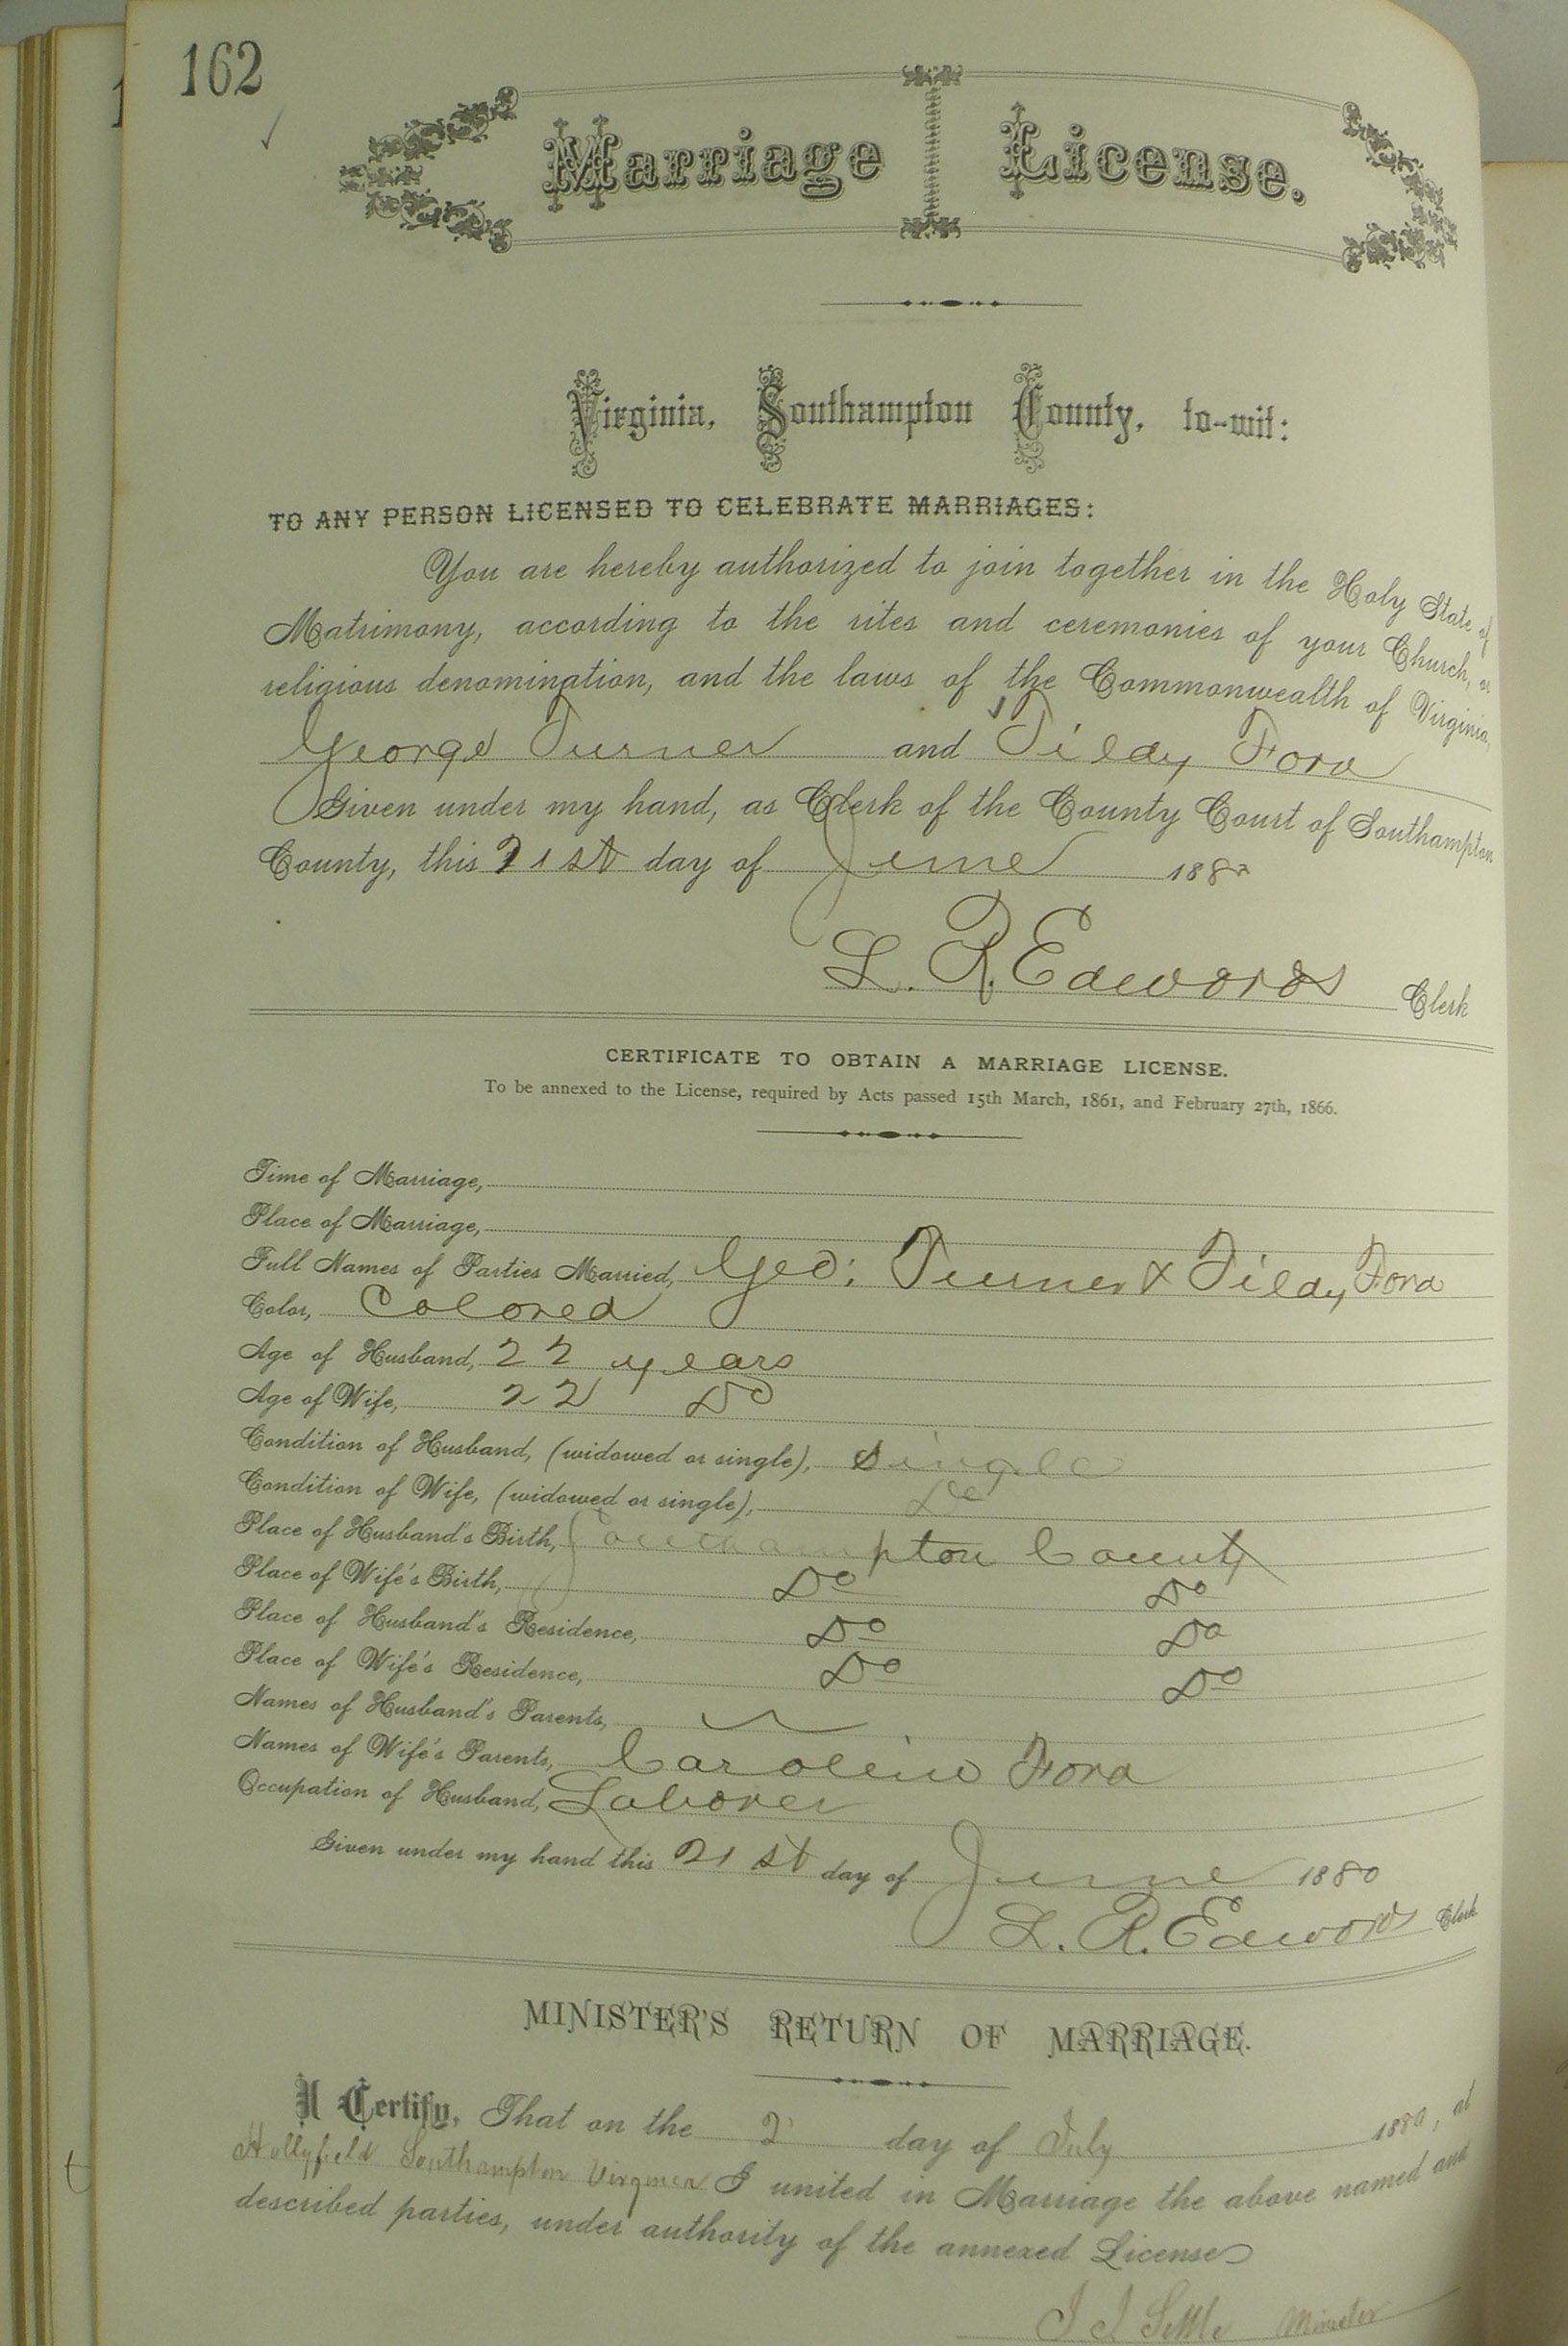 162
Marriage License.
Virginia, Southampton County, to-wit:
TO ANY PERSON LICENSED TO CELEBRATE MARRIAGES:
You are hereby authorized to join together in the Holy State of
Matrimony, according to the rites and ceremonies of your Church, or
religious denomination, and the laws of the Commonwealth of Virginia,
George Turner and Tildy Ford
Given under my hand, as Clerk of the County Court of Southampton
County, this 21st day of June 1880
L. R. Edwards Clerk
CERTIFICATE TO OBTAIN A MARRIAGE LICENSE.
To be annexed to the License, required by Acts passed 15th March, 1861, and February 27th, 1866.
Time of Marriage,
Place of Marriage,
Full Names of Parties Married, Geo: Turner & Tildy Ford
Color, Colored
Age of Husband, 22 years
Age of Wife, 22 Do
Condition of Husband, (widowed or single), single
Condition of Wife, (widowed or single), Do
Place of Husband's Birth, Southampton County
Place of Wife's Birth, Do Do
Place of Husband's Residence, Do Do
Place of Wife's Residence, Do Do
Names of Husband's Parents,
Names of Wife's Parents, Caroline Ford
Occupation of Husband, Laborer
Given under my hand this 21st day of June 1880
L. R. Edwards Clerk
MINISTER'S RETURN OF MARRIAGE.
I Certify, That on the 2 day of July 1880, at
Hollyfield Southampton Virginia I united in Marriage the above named and
described parties, under authority of the annexed License
Minister